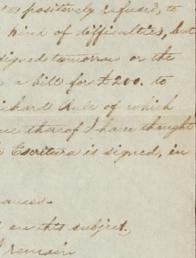 positively refused, to
kind of difficulties, but
signed tomorrow or the
a bill for £200. to
Richard Rule of which
thereof I have thought
Escritura is signed, in
on this subject,
I remain